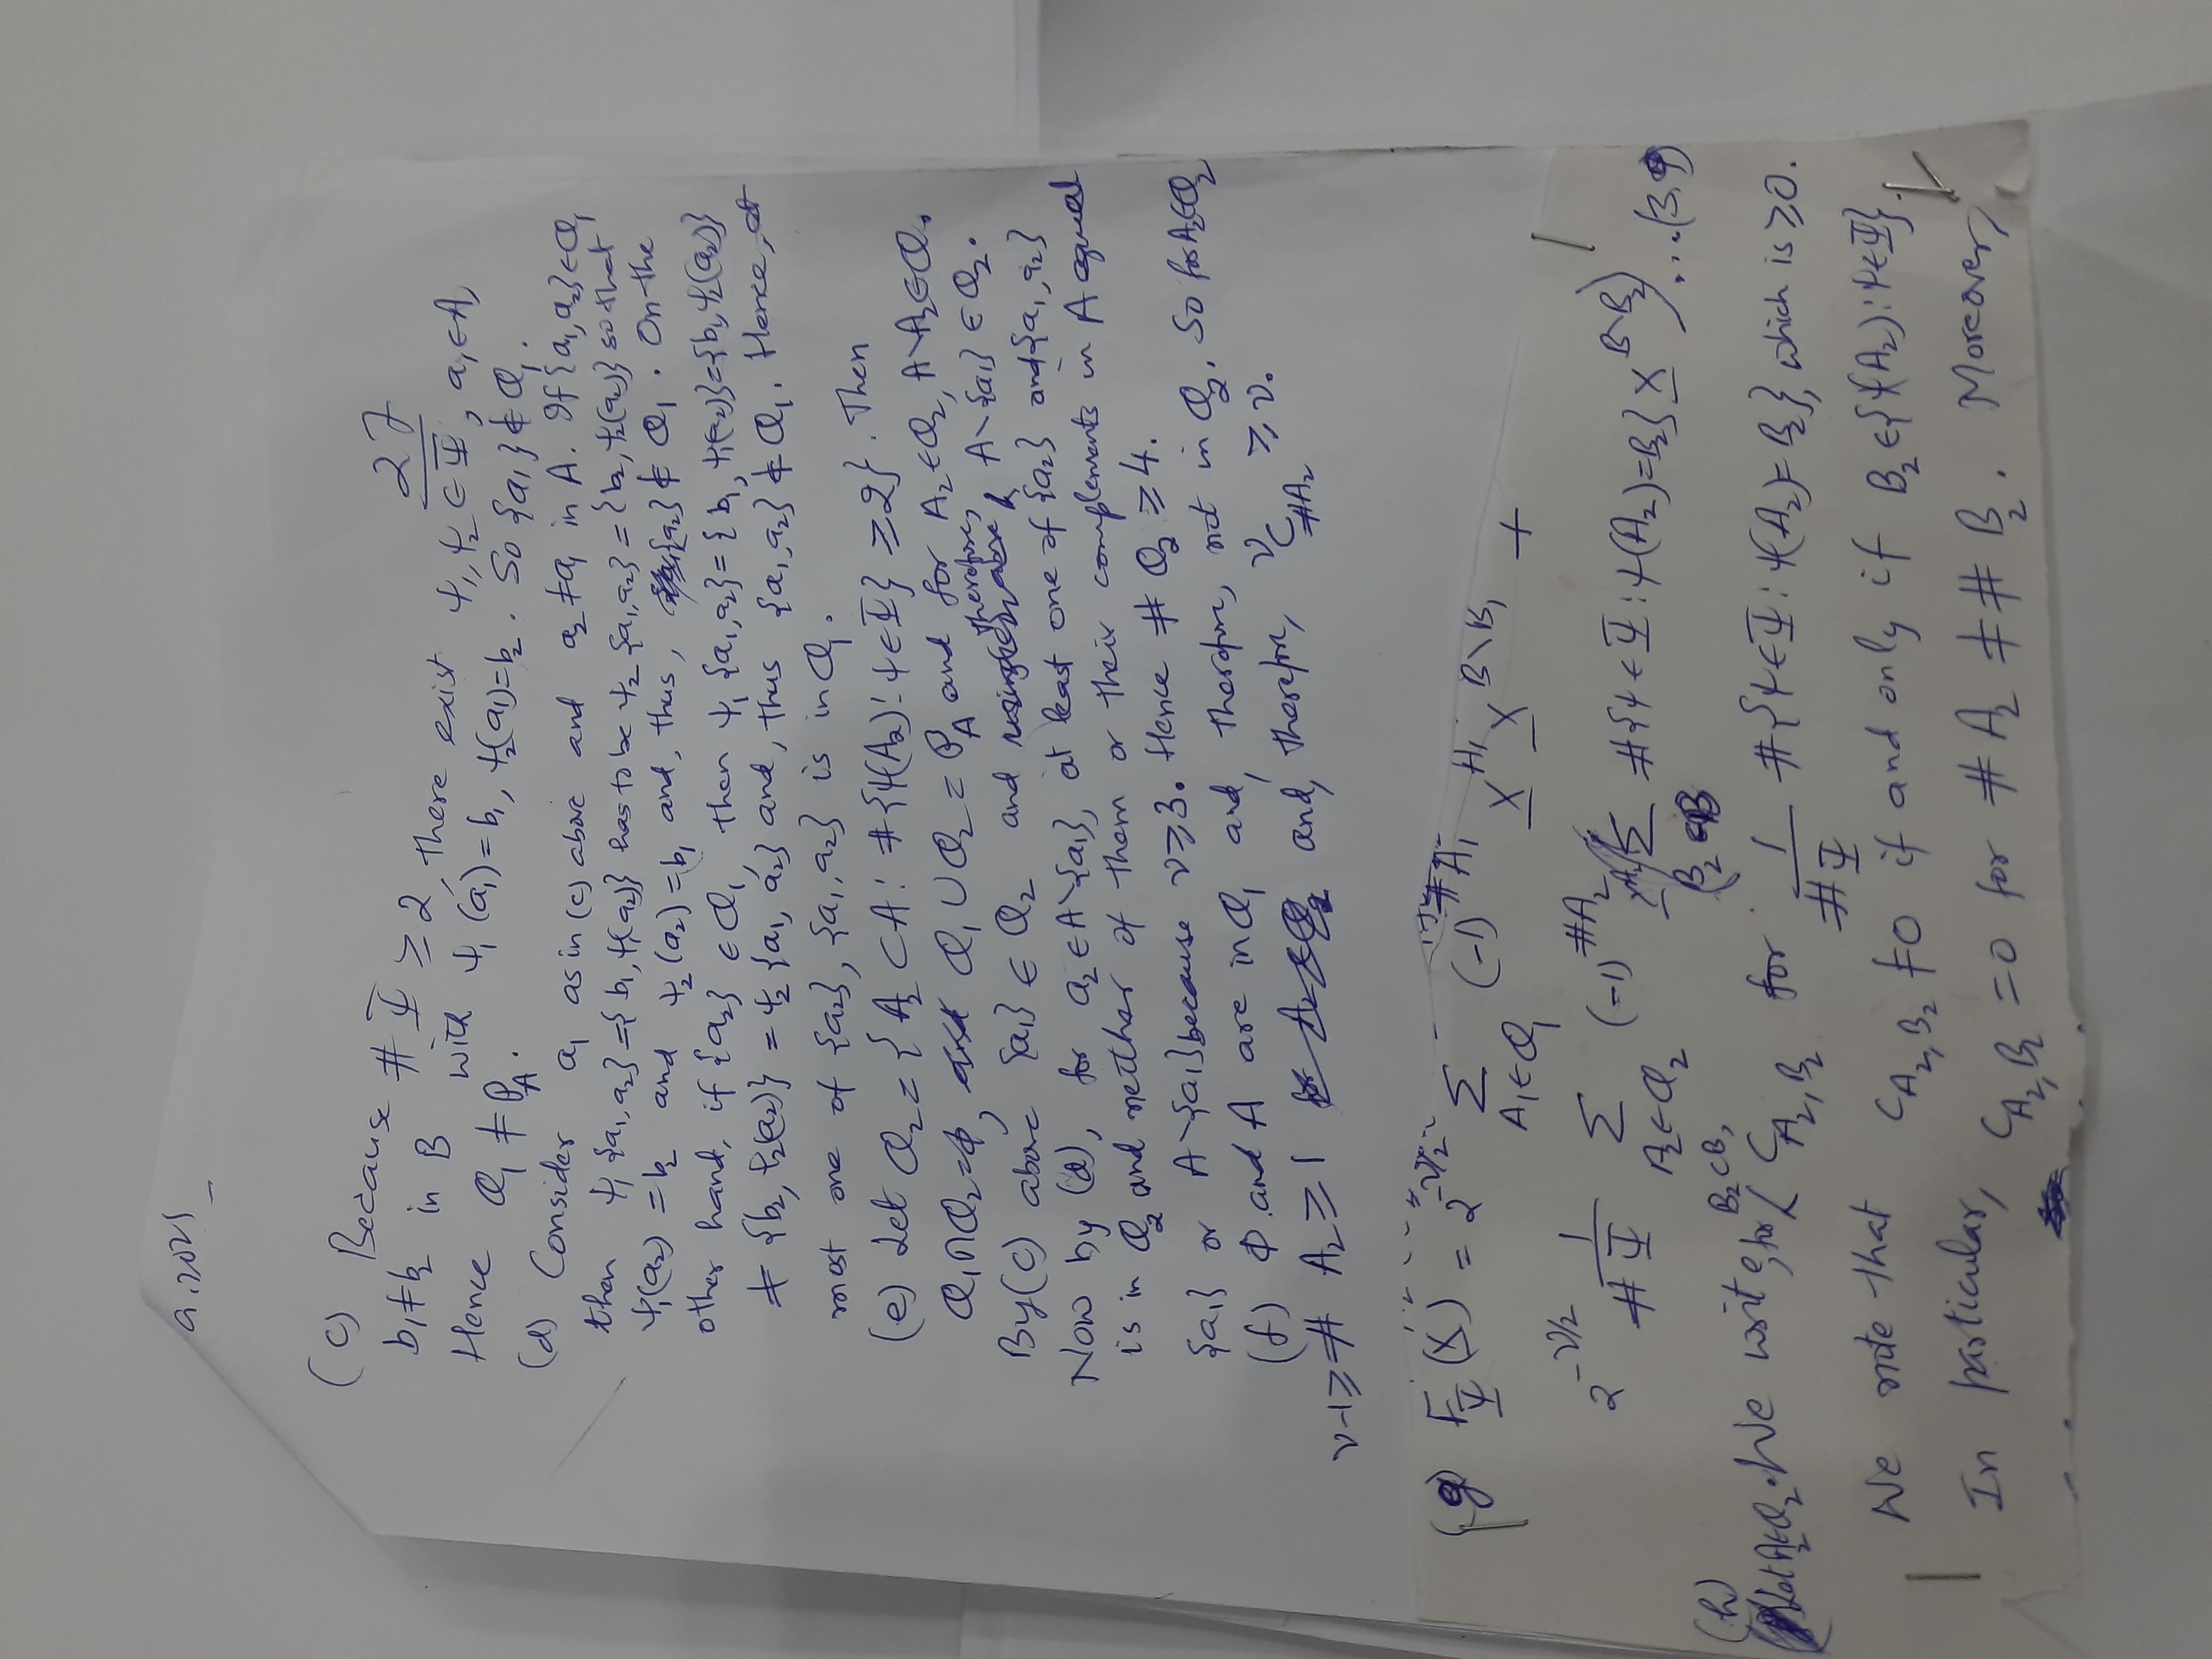 (c) Because # Ψ ≥ 2, there exist ψ₁, ψ₂ ∈ Ψ, a₁ ∈ A,
27
b₁ ≠ b₂ in B with ψ₁(a₁) = b₁, ψ₂(a₁) = b₂. So {a₁} ∉ Q₁.
Hence Q₁ ≠ P_A.
(d) Consider a₁ as in (c) above and a₂ ≠ a₁ in A. If {a₁, a₂} ∈ Q₁
then ψ₁{a₁, a₂} = {b₁, ψ₁(a₂)} has to be ψ₂{a₁, a₂} = {b₂, ψ₂(a₂)} so that
ψ₁(a₂) = b₂ and ψ₂(a₂) = b₁ and, thus, {a₂} ∉ Q₁. On the
other hand, if {a₂} ∈ Q₁, then ψ₁{a₁, a₂} = {b₁, ψ₁(a₂)} = {b₁, ψ₂(a₂)}
≠ {b₂, ψ₂(a₂)} = ψ₂{a₁, a₂} and, thus {a₁, a₂} ∉ Q₁. Hence, at
most one of {a₂}, {a₁, a₂} is in Q₁.
(e) Let Q₂ = {A₂ ⊂ A : #{ψ(A₂) : ψ ∈ Ψ} ≥ 2}. Then
Q₁ ∩ Q₂ = φ, Q₁ ∪ Q₂ = P_A and for A₂ ∈ Q₂, A∖A₂ ∈ Q₂.
By (c) above {a₁} ∈ Q₂ and therefore, A∖{a₁} ∈ Q₂.
Now by (d), for a₂ ∈ A∖{a₁}, at least one of {a₂} and {a₁, a₂}
is in Q₂ and neither of them or their complements in A equal
{a₁} or A∖{a₁} because ν ≥ 3. Hence # Q₂ ≥ 4.
(f) Φ and A are in Q₁ and, therefore, not in Q₂. So for A₂ ∈ Q₂
ν-1 ≥ # A₂ ≥ 1 and, therefore, ^νC_{#A₂} ≥ ν.
(g) F_Ψ(X) = 2^{-ν/2} Σ_{A₁∈Q₁} (-1)^{#A₁} X^{A₁} X^{B∖B₁} +
2^{-ν/2} 1/#Ψ Σ_{A₂∈Q₂} (-1)^{#A₂} X^{A₂} (Σ_{B₂⊂B} #{ψ ∈ Ψ : ψ(A₂) = B₂} X^{B∖B₂}) ...(3.9)
(h)
Let A₂ ∈ Q₂. We write, for B₂ ⊂ B, C_{A₂,B₂} for 1/#Ψ #{ψ ∈ Ψ : ψ(A₂) = B₂}, which is ≥ 0.
We note that C_{A₂,B₂} ≠ 0 if and only if B₂ ∈ {ψ(A₂) : ψ ∈ Ψ}.
In particular, C_{A₂,B₂} = 0 for # A₂ ≠ # B₂. Moreover,